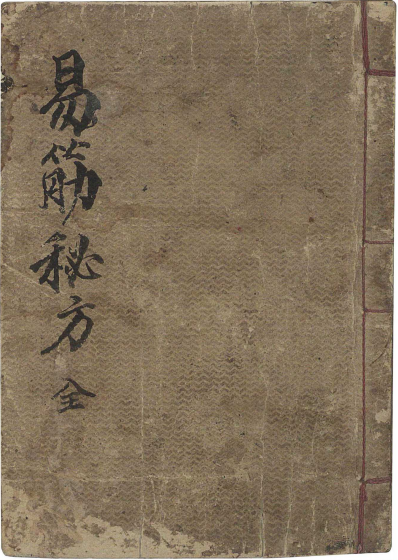 易筋秘方 全